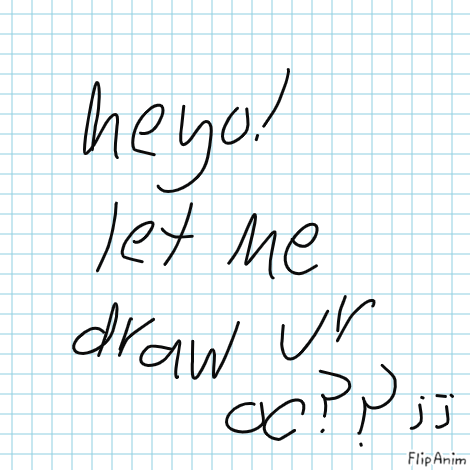 heyo!
let me
draw ur
oc?? jj
FlipAnim